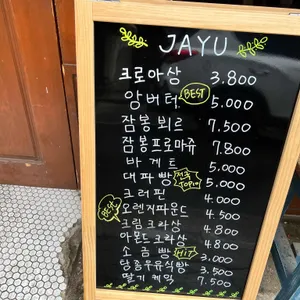 JAYU
크로아상 3.800
앙버터 BEST 5.000
잠봉뵈르 7.500
잠봉프로마쥬 7.800
바게트 5.000
대파빵 5.000
크러핀 4.000
BEST 오렌지파운드 4.500
크림크라상 4.800
아몬드크라상 4.800
소금빵 HIT! 3.000
탕종우유식빵 3.500
딸기케익 7.500